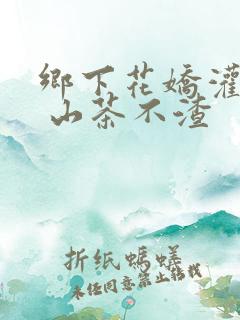 鄉下花嬌灌
山茶不渣
折纸螞蟻
未经同意禁止转载